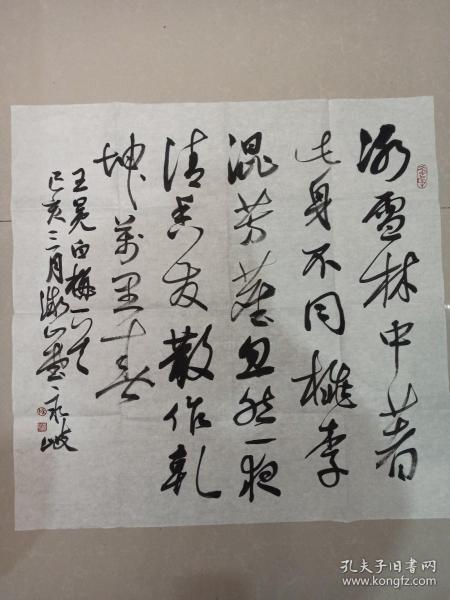 冰雪林中著
此身不同桃李
混芳塵忽然一夜
清香发散作乾
坤萬里春
王冕白梅一首
己亥三月
孔夫子旧书网
www.kongfz.com